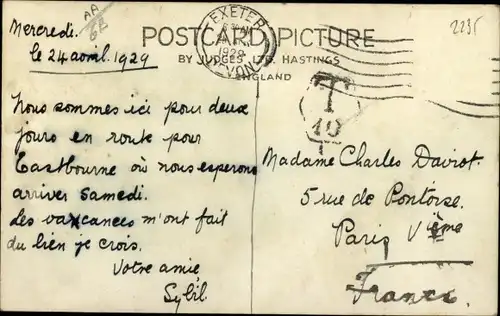 Mercredi.
le 24 avril. 1929
AA
2235
EXETER
1929
DEVON
POSTCARD PICTURE
BY JUDGES LTD. HASTINGS
ENGLAND
T
10
Nous sommes ici pour deux
jours en route pour
Eastbourne où nous esperons
arriver samedi.
Les vacances m'ont fait
du bien je crois.
Votre amie
Sybil.
Madame Charles Daviot.
5 rue de Pontoise.
Paris Vième
France.